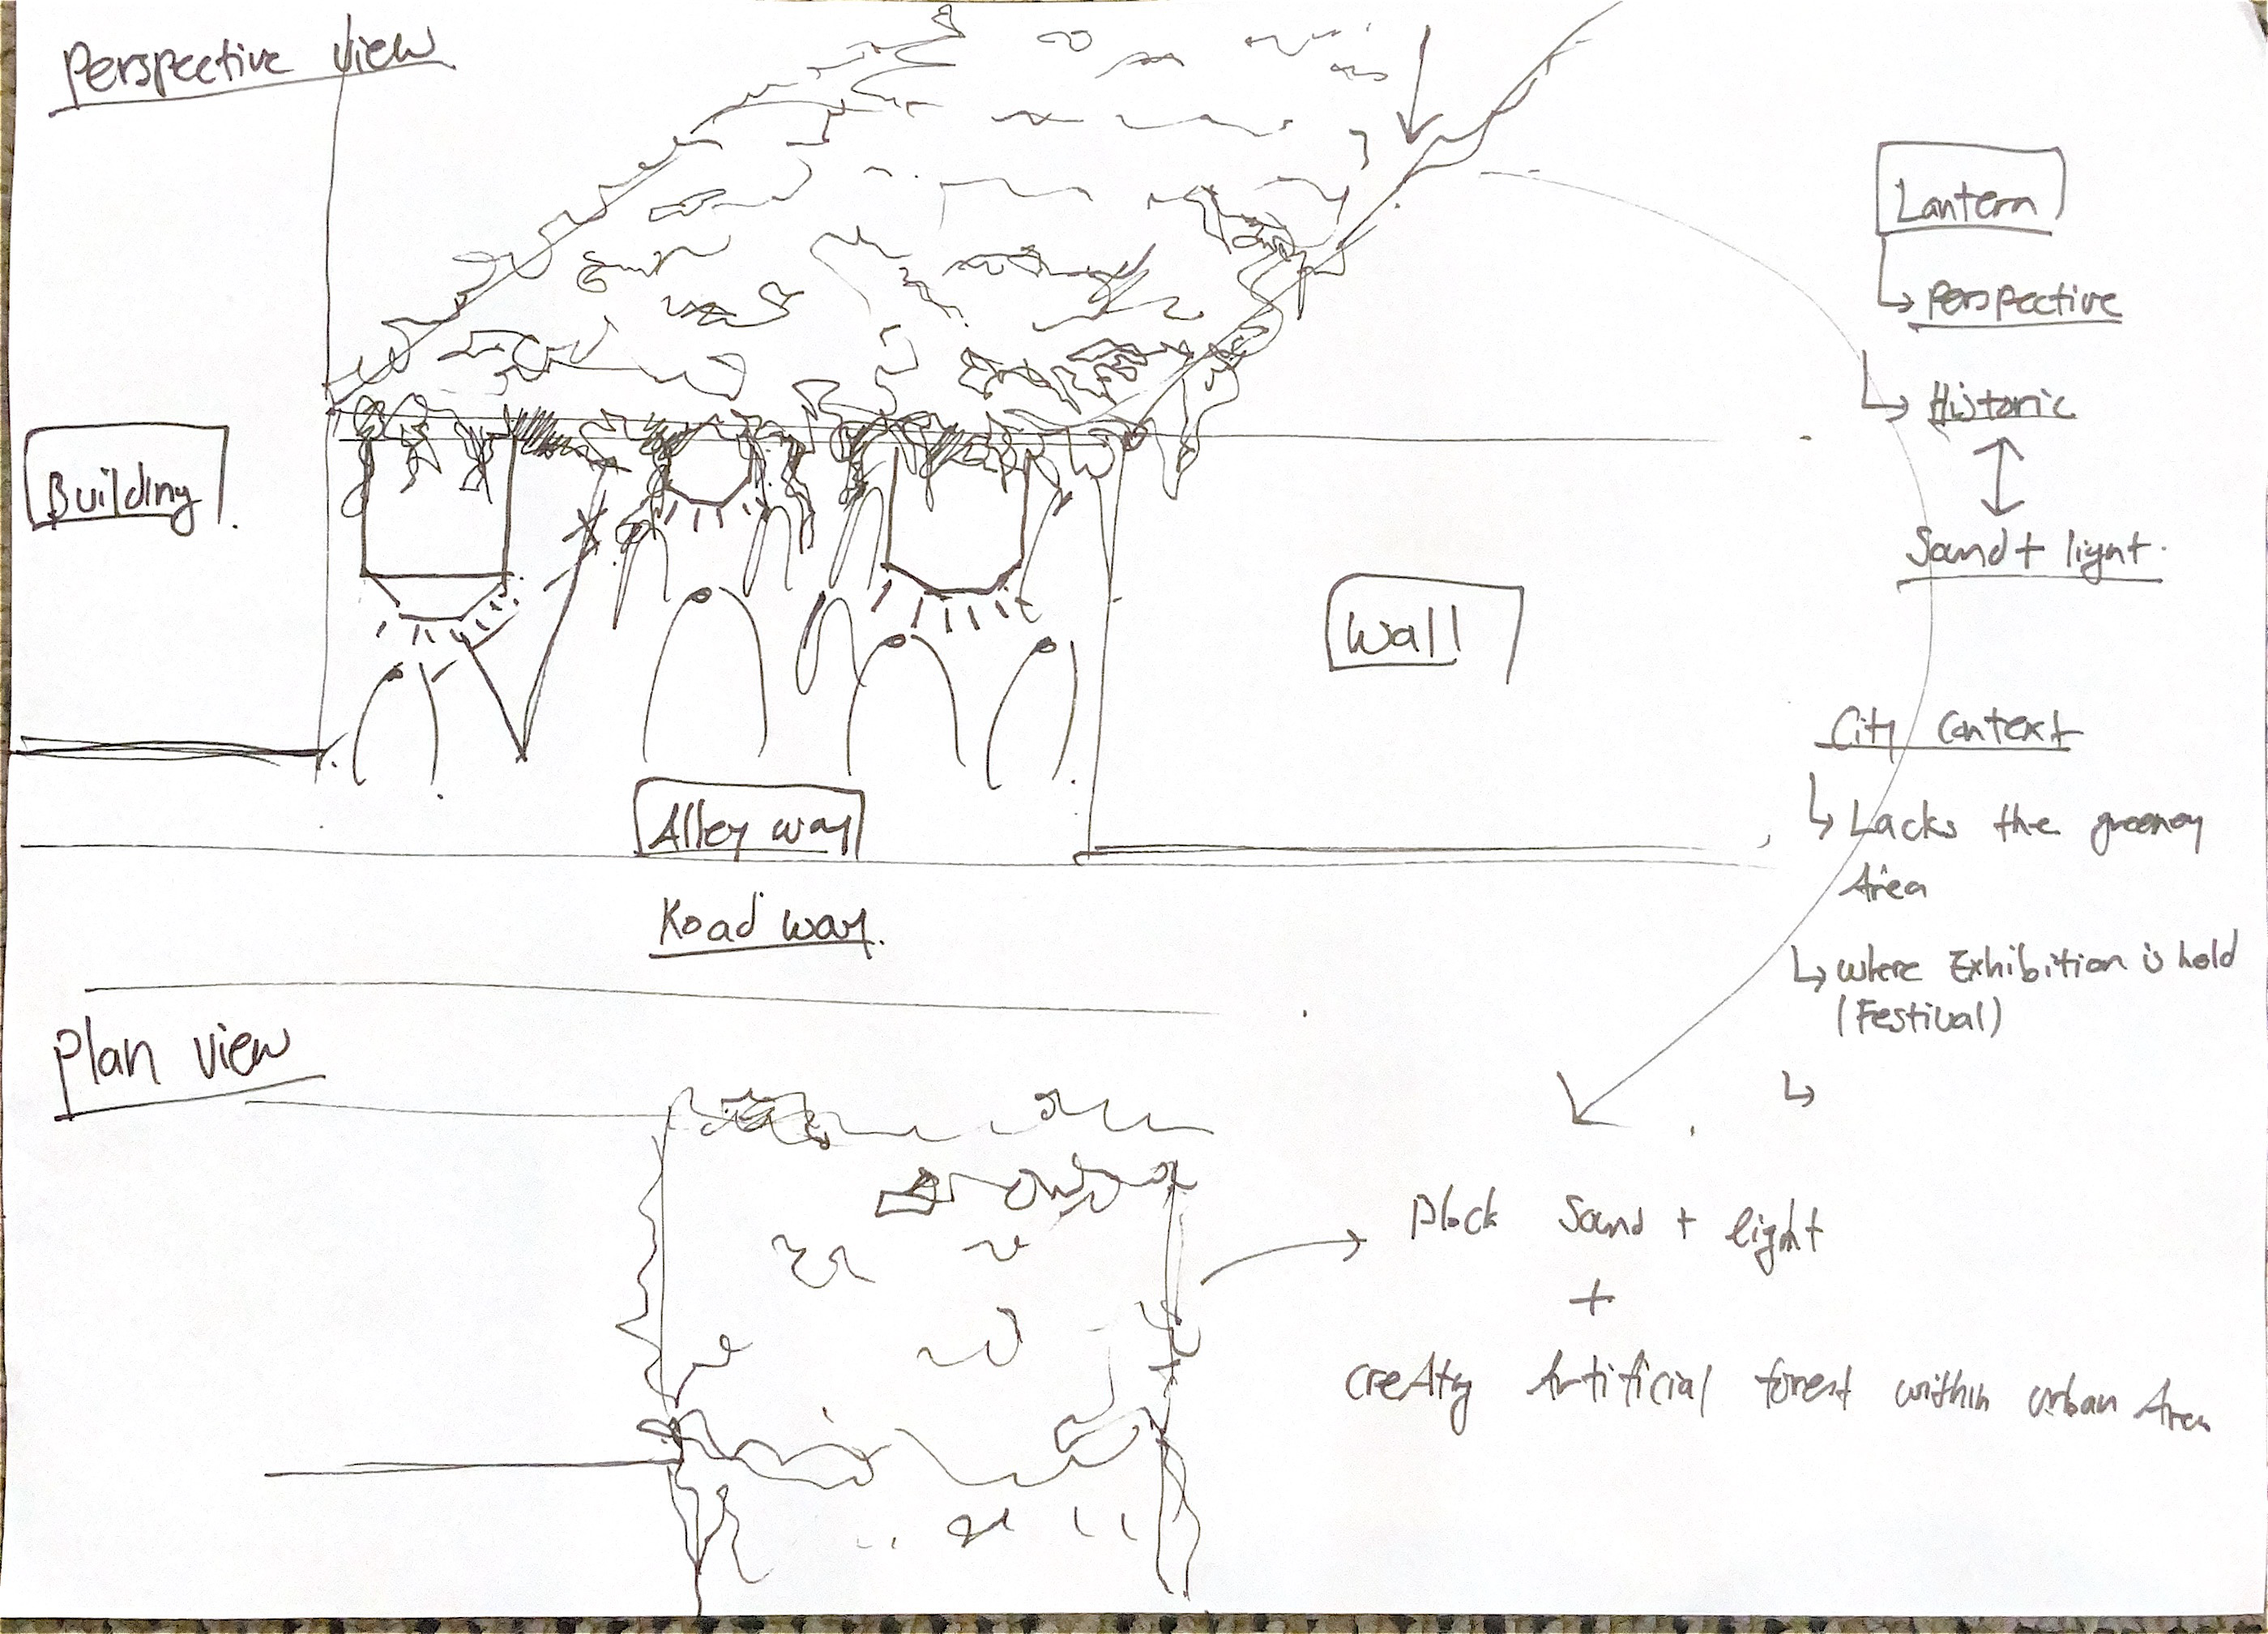 Perspective view
Building
Wall
Alley way
Road way.
Lantern
Perspective
Historic
Sound + light.
City Context
Lacks the greenery
Area
where Exhibition is hold
(Festival)
Plan view
Block Sound + light
+
Artificial forest within urban Area